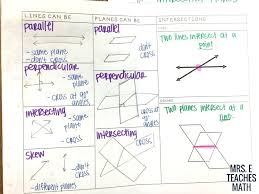 LINES CAN BE
PLANES CAN BE
INTERSECTIONS
parallel
- same plane
- don't cross
perpendicular
- same plane
- cross at 90°
intersecting
- same plane
- cross
skew
- don't cross
- different planes
parallel
don't cross
perpendicular
cross at 90° angle
intersecting
cross
Two lines intersect at a
point
Two planes intersect at a
line
MRS. E
TEACHES
MATH